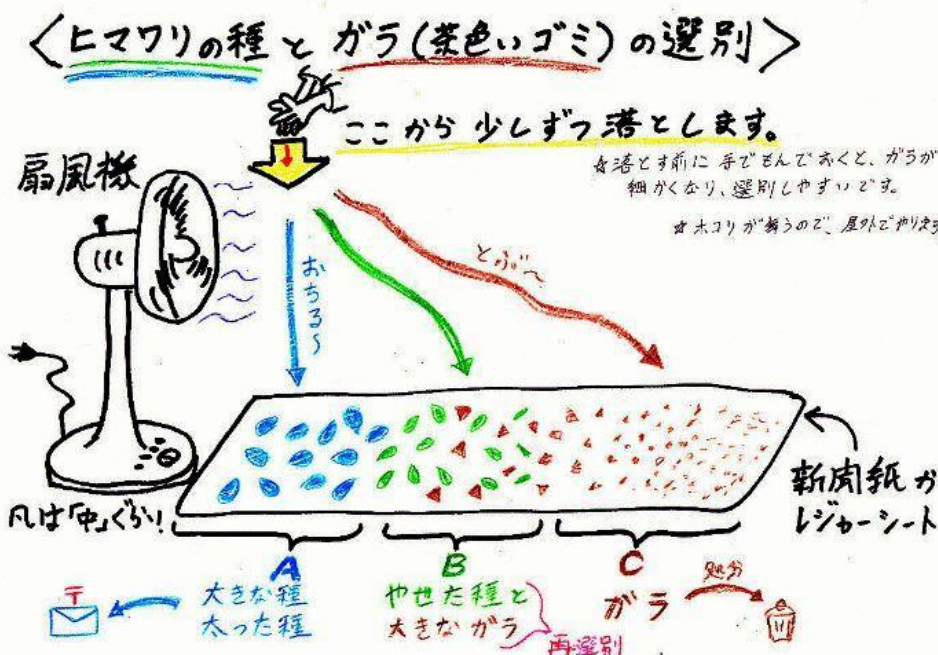 〈ヒマワリの種とガラ(茶色いゴミ)の選別〉
ここから少しずつ落とします。
☆落とす前に手でもんでおくと、ガラが
細かくなり、選別しやすいです。
☆ホコリが舞うので、屋外でやります
扇風機
おちる〜
とぶ〜
風は「中」ぐらい!
新聞紙か
レジャーシート
A
大きな種
太った種
〒
B
やせた種と
大きなガラ
再選別
C
ガラ
処分